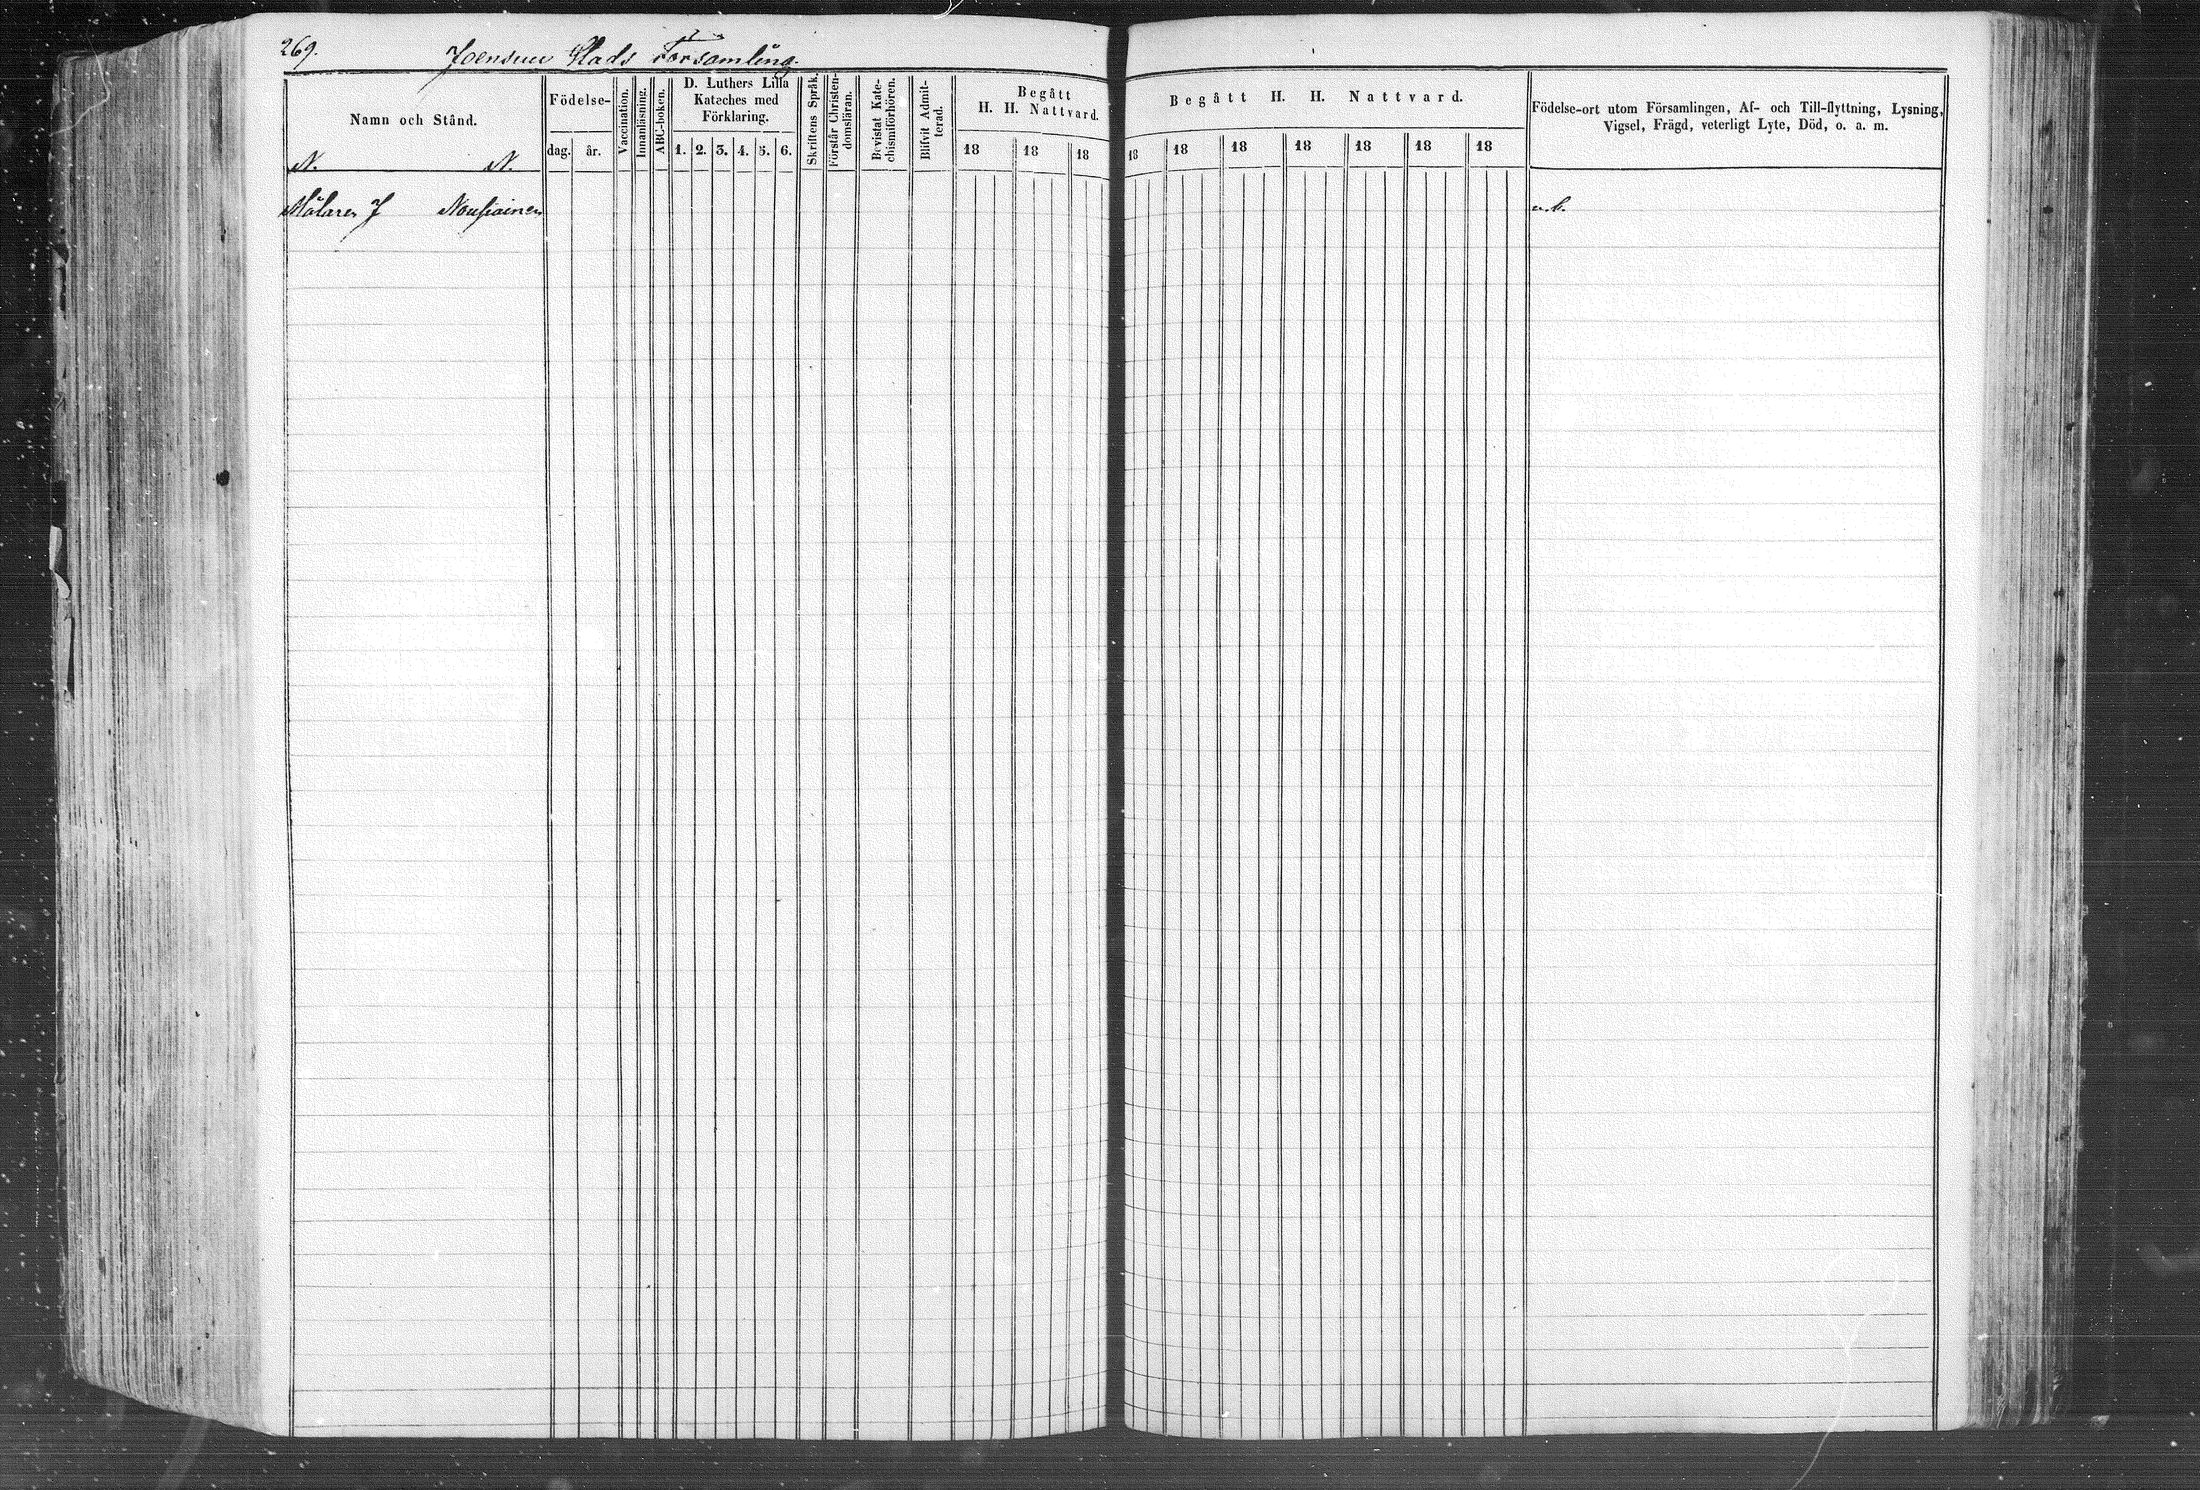 269.
Joensuu Stads Församling.
Namn och Stånd.
N. N.
Födelse-
dag. år.
Vaccination.
Innanläsning.
ABC-boken.
D. Luthers Lilla
Kateches med
Förklaring.
1. 2. 3. 4. 5. 6.
Skriftens Språk.
Förstår Christen-
domsläran.
Bevistat Kate-
chismiförhören.
Blifvit Admit-
terad.
Begått
H. H. Nattvard.
18 18 18
Begått H. H. Nattvard.
18 18 18 18 18 18 18
Födelse-ort utom Församlingen, Af- och Till-flyttning, Lysning,
Vigsel, Frägd, veterligt Lyte, Död, o. a. m.
Målaren J Nousiainen